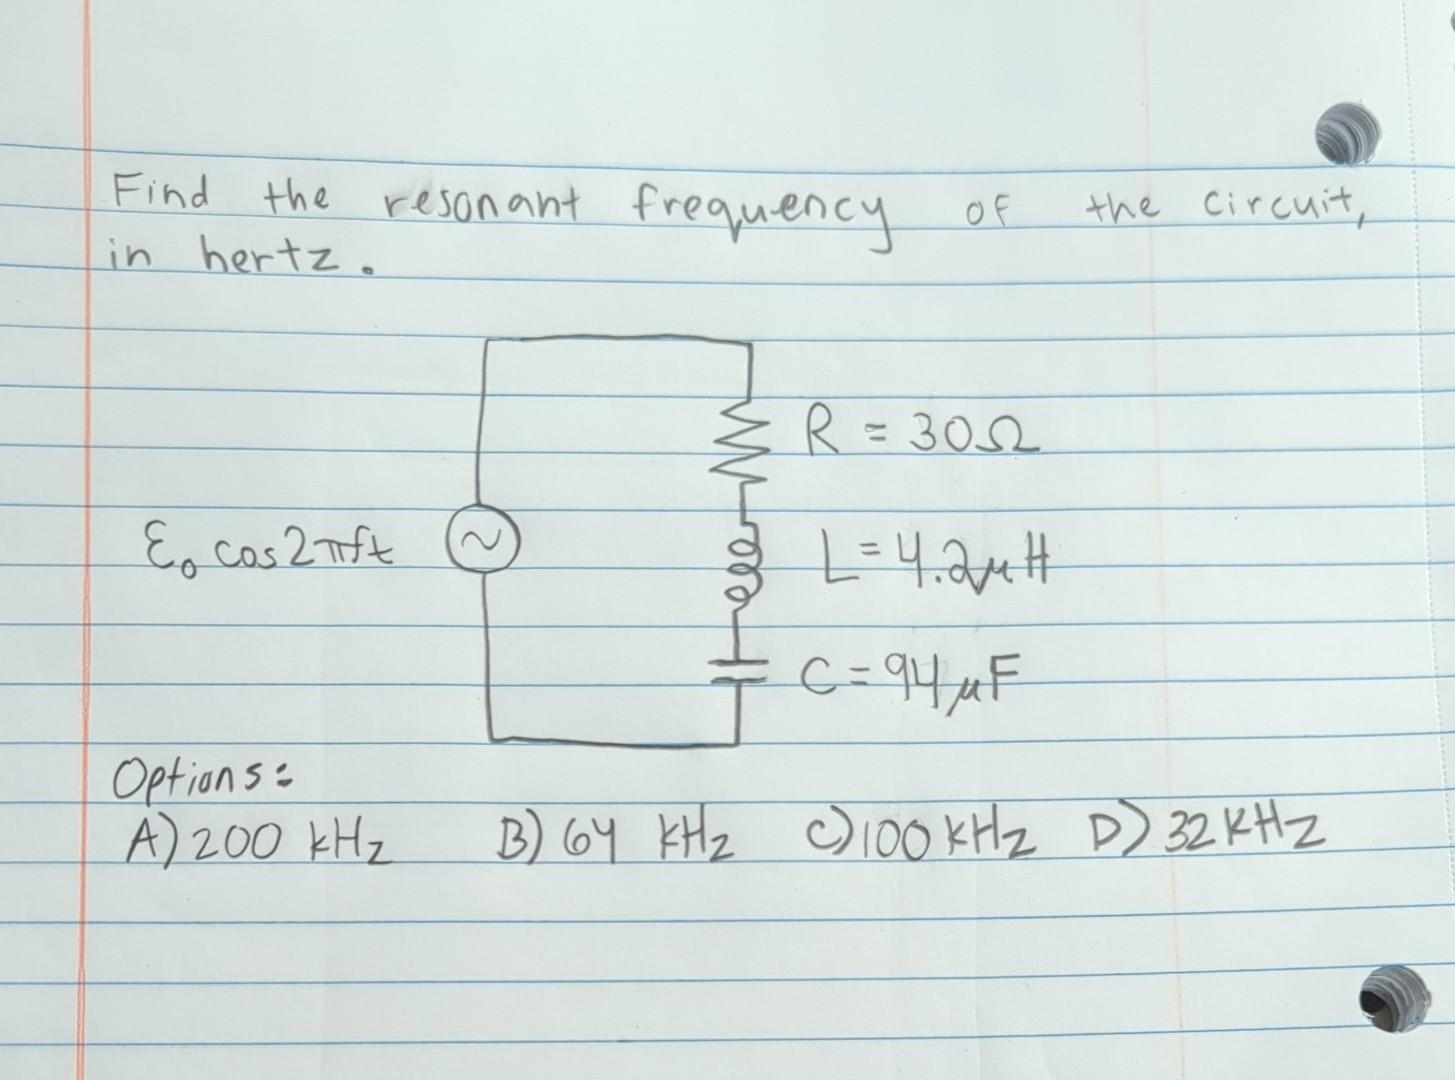 Find the resonant frequency of the circuit,
in hertz.
R = 30Ω
ℰ₀ cos2πft
L = 4.2μH
C = 94μF
Options:
A) 200 kHz B) 64 kHz C) 100 kHz D) 32 kHz